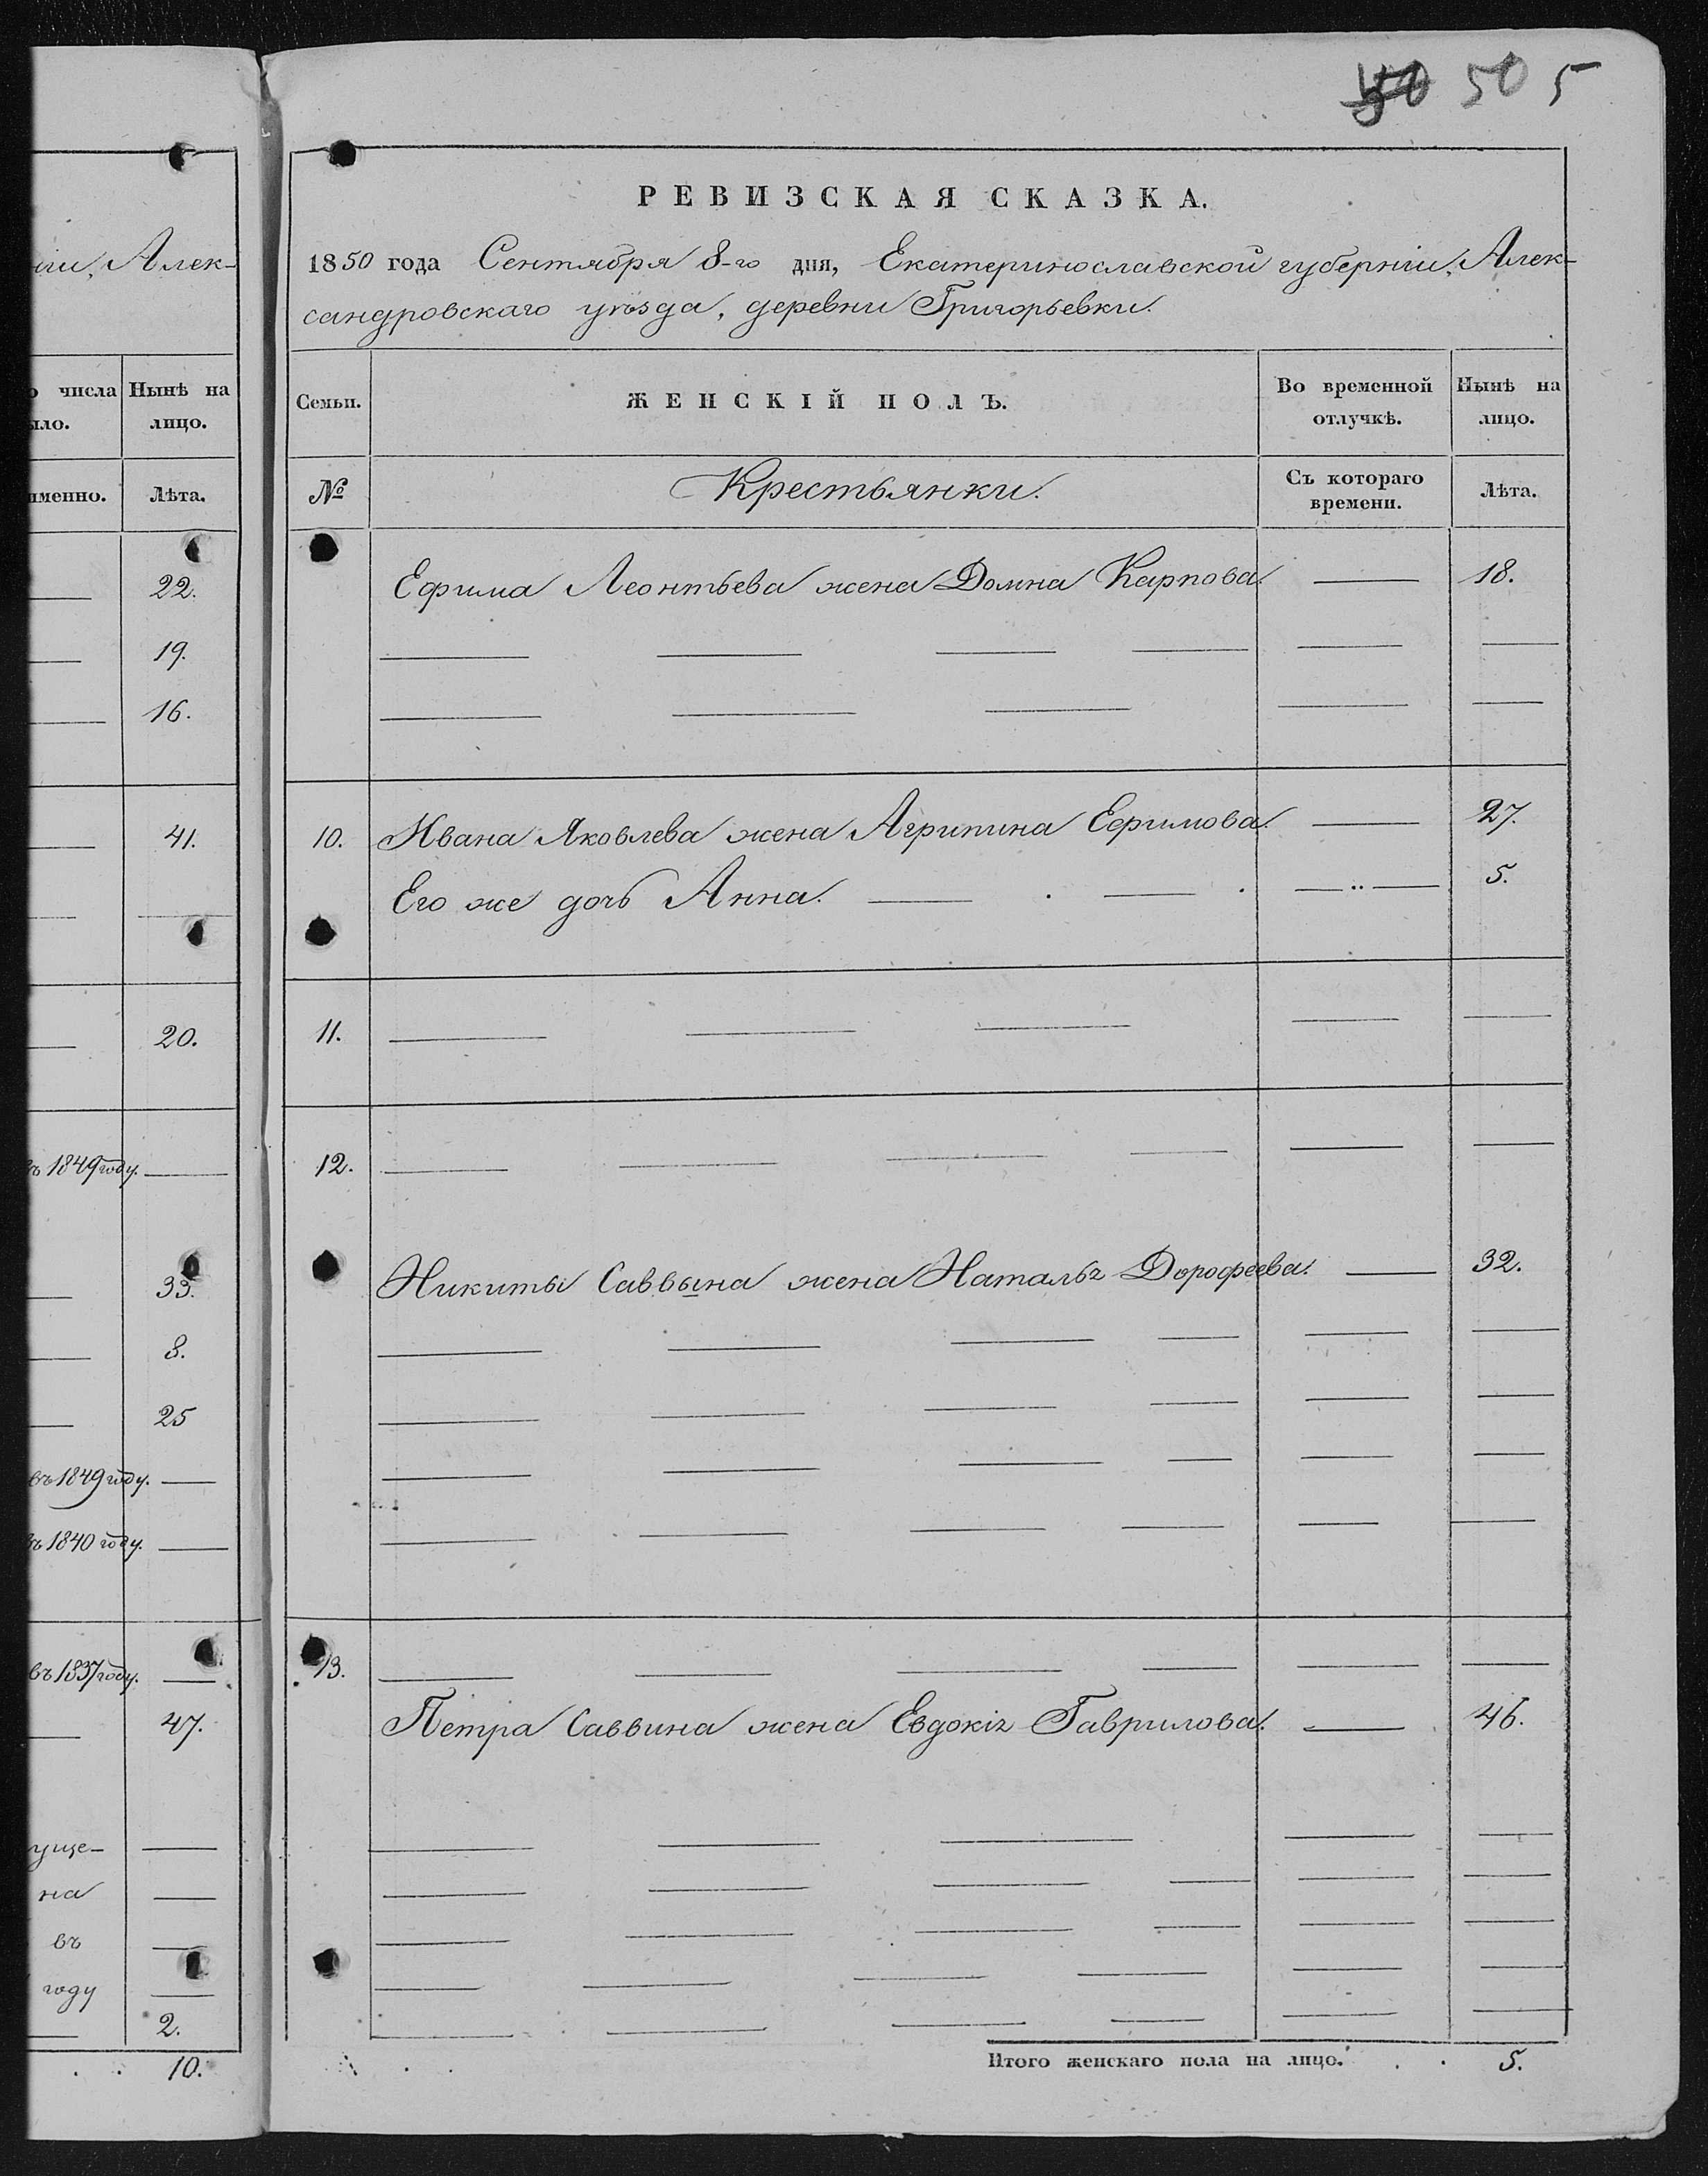 50 5
іи, Алек-
числа Нынѣ на
ыло. лицо.
именно. Лѣта.
22.
19.
16.
41.
20.
въ 1849 году.
33.
8.
25
въ 1849 году.
въ 1840 году.
въ 1837 году.
47.
уще-
на
въ
году
2.
10.
РЕВИЗСКАЯ СКАЗКА.
1850 года Сентября 8-го дня, Екатеринославской губерніи, Алек-
сандровскаго уѣзда, деревни Григорьевки.
Семьи. ЖЕНСКІЙ ПОЛЪ. Во временной Нынѣ на
отлучкѣ. лицо.
№ Крестьянки. Съ котораго Лѣта.
времени.
Ефима Леонтьева жена Домна Карпова. 18.
10. Ивана Яковлева жена Агрипина Ефимова. 27.
Его же дочь Анна. 5.
11.
12.
Никиты Саввына жена Наталья Дорофеева. 32.
13.
Петра Саввина жена Евдокія Гаврилова. 46.
Итого женскаго пола на лицо. 5.